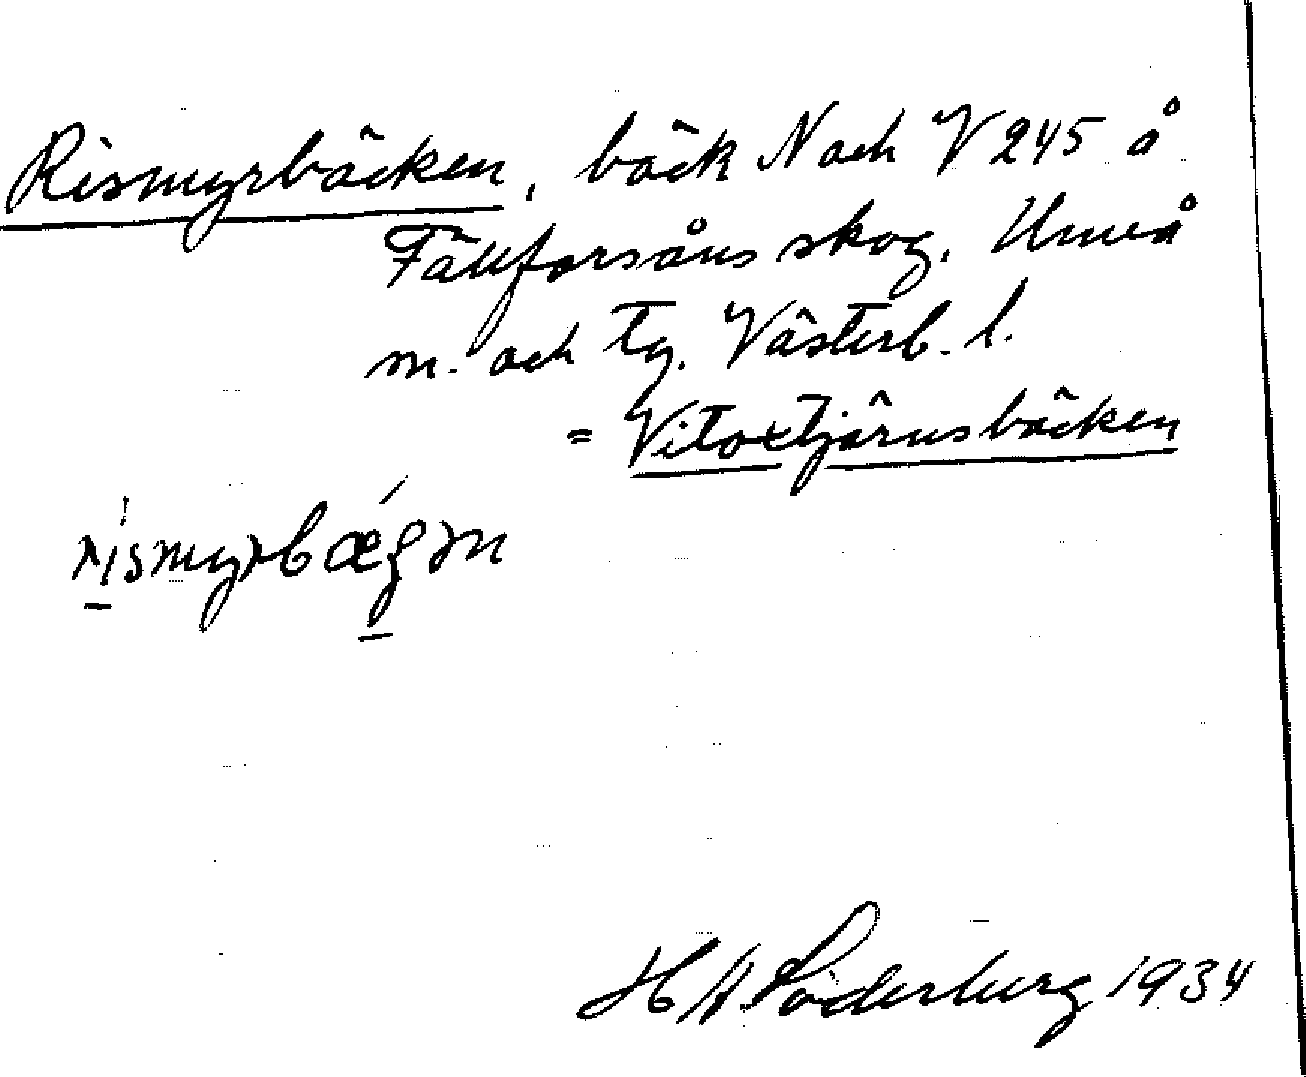 Rismyrbäcken, bäck N och V 245 å
Fällforsåns skog. Umeå
m. och tg. Västerb. l.
= Vitoxtjärnsbäcken
H A Söderberg 1934